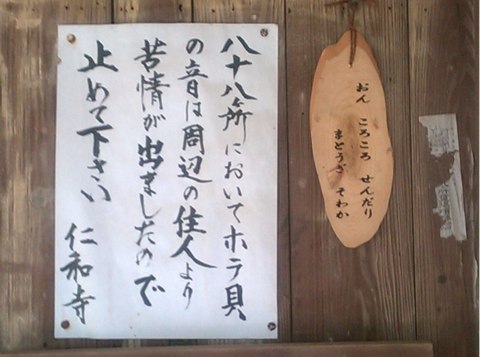 八十八ヶ所においてホラ貝
の音は周辺の住人より
苦情が出ましたので
止めて下さい
仁和寺
おん ころころ せんだり
まとうぎ そわか